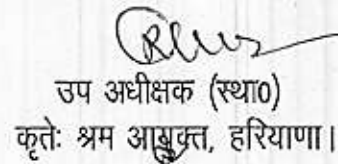 उप अधीक्षक (स्था0)
कृतेः श्रम आयुक्त, हरियाणा।